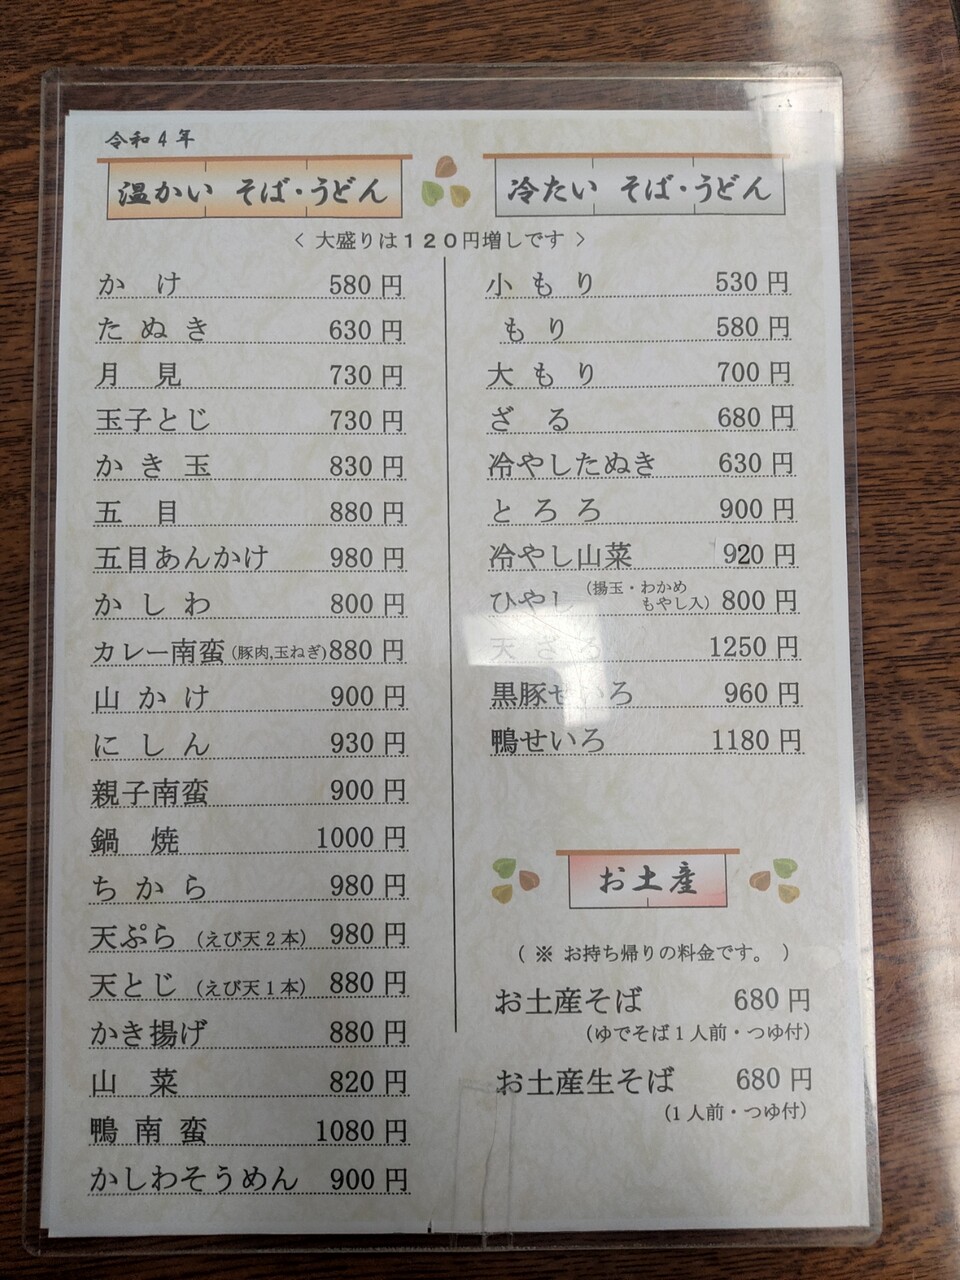 令和4年
温かい そば・うどん
冷たい そば・うどん
< 大盛りは120円増しです >
かけ 580円
たぬき 630円
月見 730円
玉子とじ 730円
かき玉 830円
五目 880円
五目あんかけ 980円
かしわ 800円
カレー南蛮(豚肉,玉ねぎ)880円
山かけ 900円
にしん 930円
親子南蛮 900円
鍋焼 1000円
ちから 980円
天ぷら (えび天2本) 980円
天とじ (えび天1本) 880円
かき揚げ 880円
山菜 820円
鴨南蛮 1080円
かしわそうめん 900円
小もり 530円
もり 580円
大もり 700円
ざる 680円
冷やしたぬき 630円
とろろ 900円
冷やし山菜 920円
ひやし (揚玉・わかめ
もやし入) 800円
天ざる 1250円
黒豚せいろ 960円
鴨せいろ 1180円
お土産
( ※ お持ち帰りの料金です。 )
お土産そば 680円
(ゆでそば1人前・つゆ付)
お土産生そば 680円
(1人前・つゆ付)